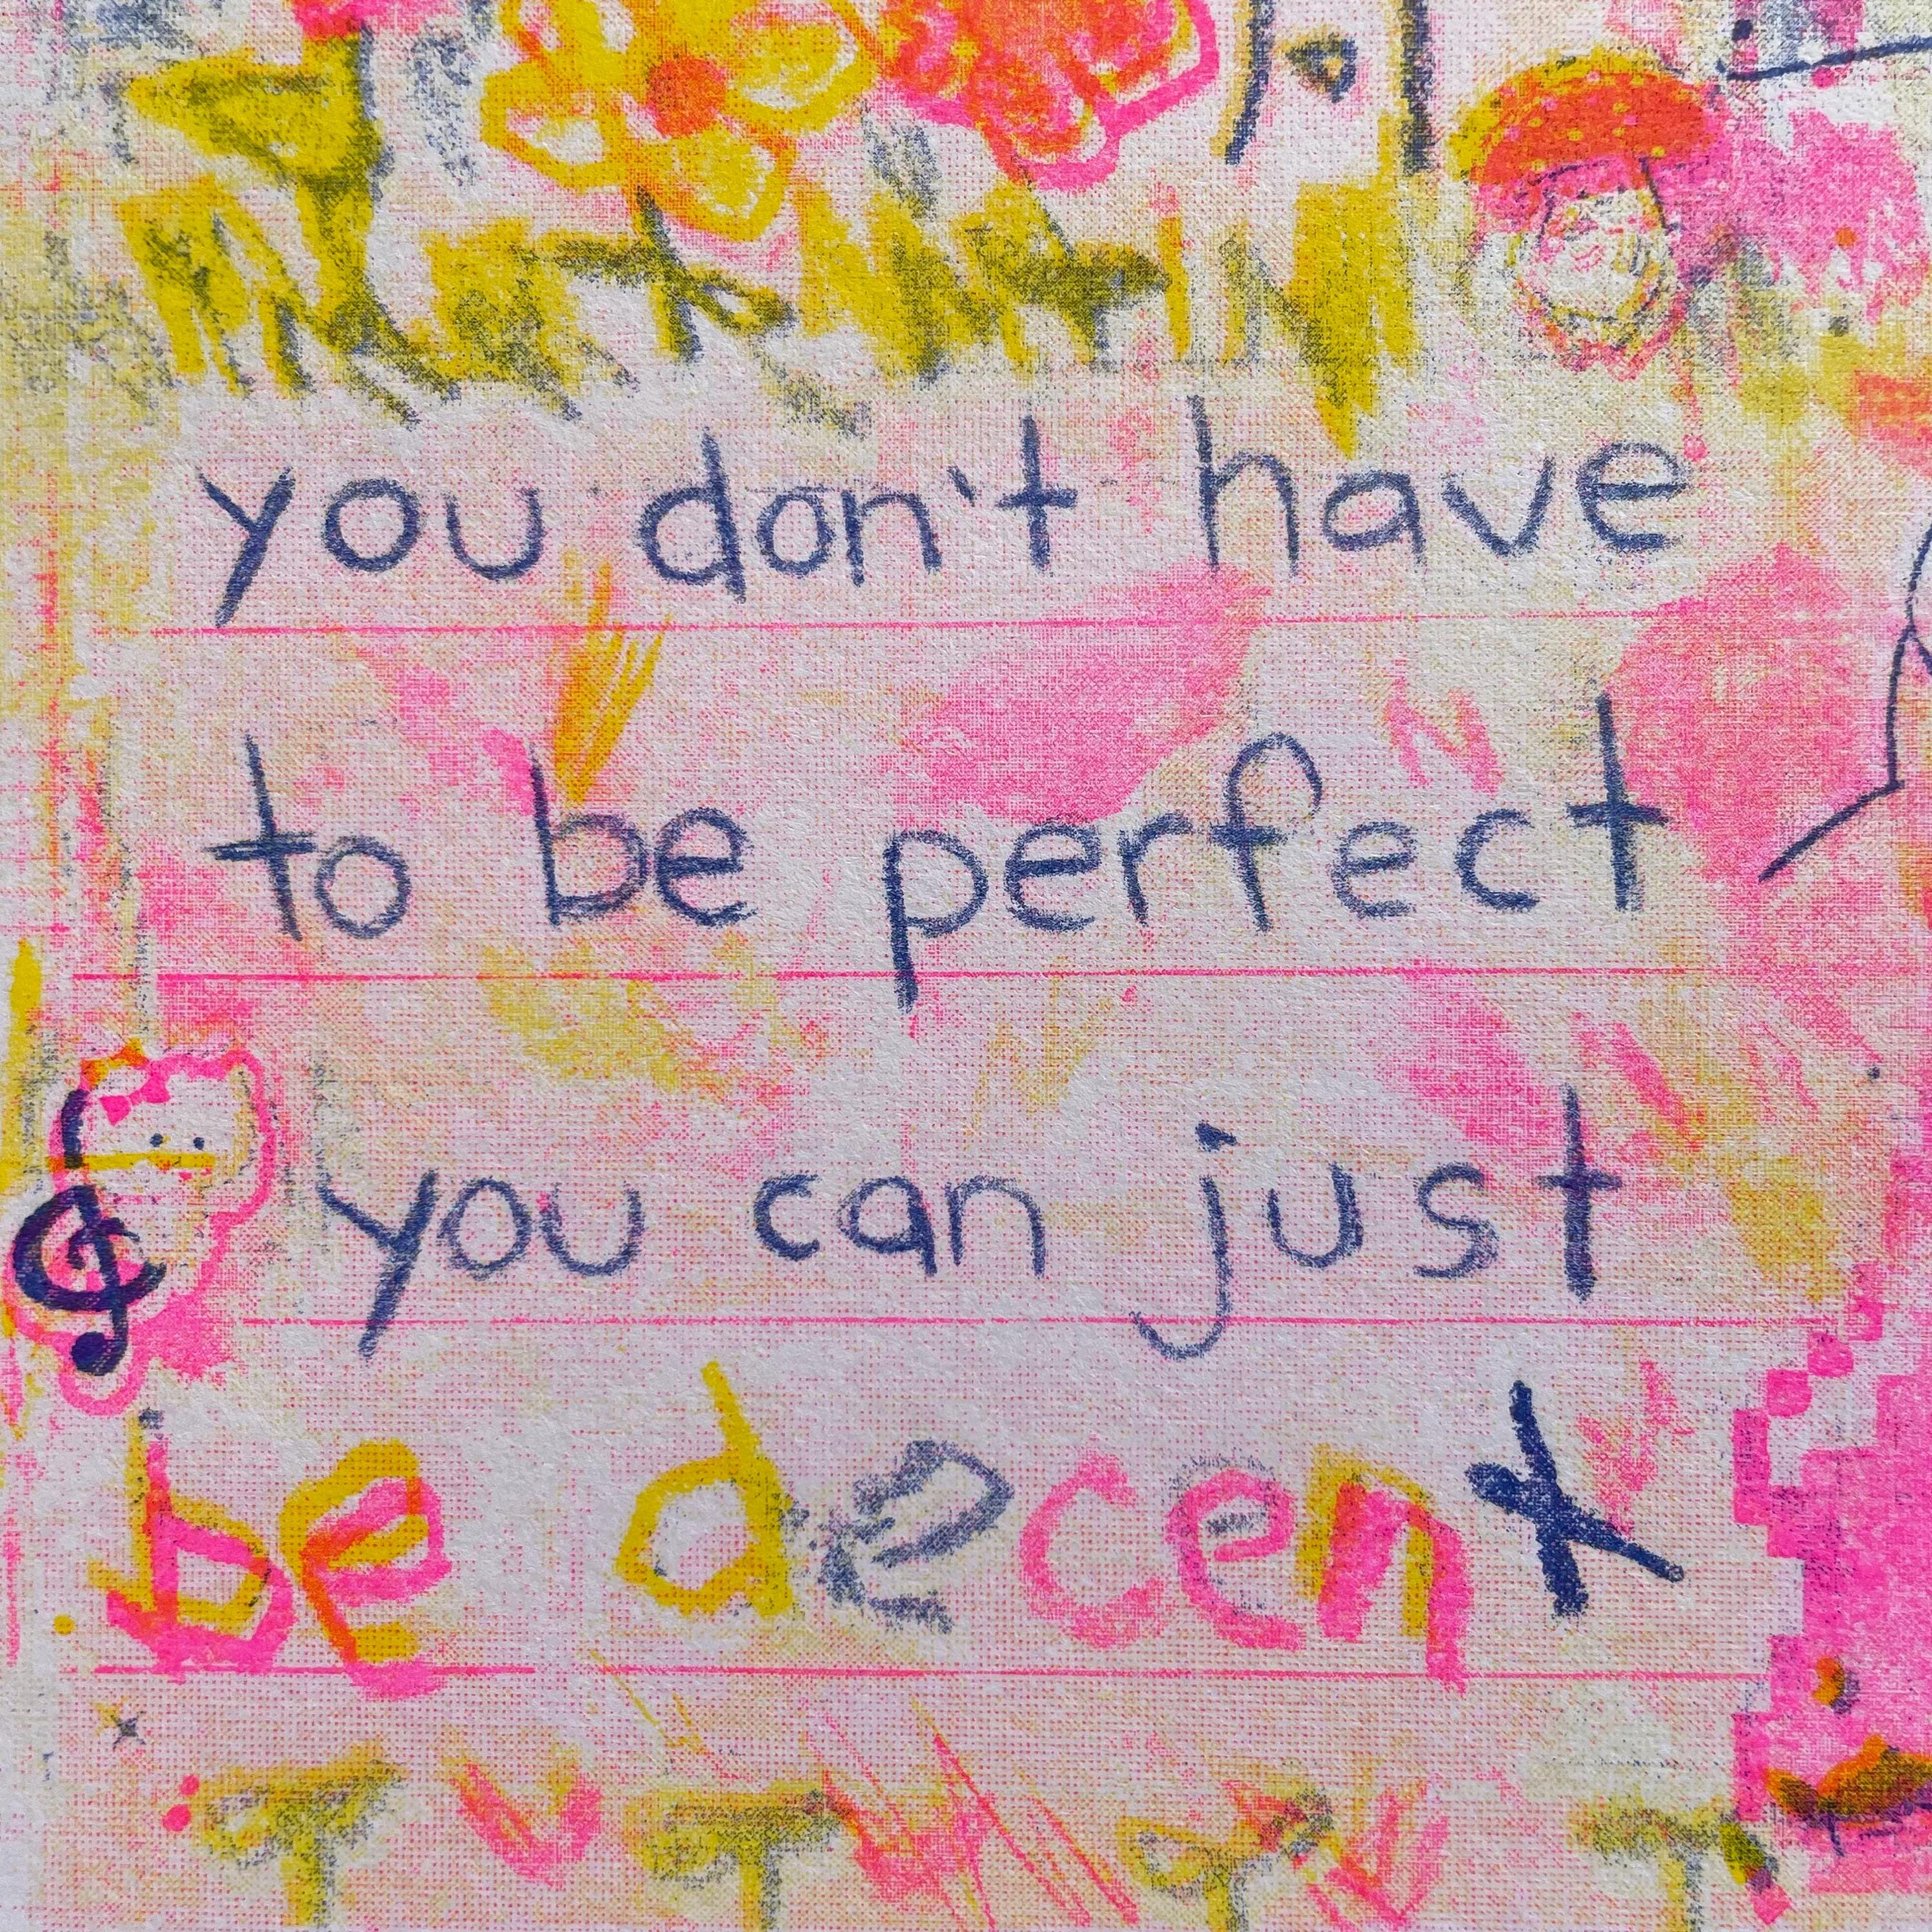 you don't have
to be perfect
you can just
be decent